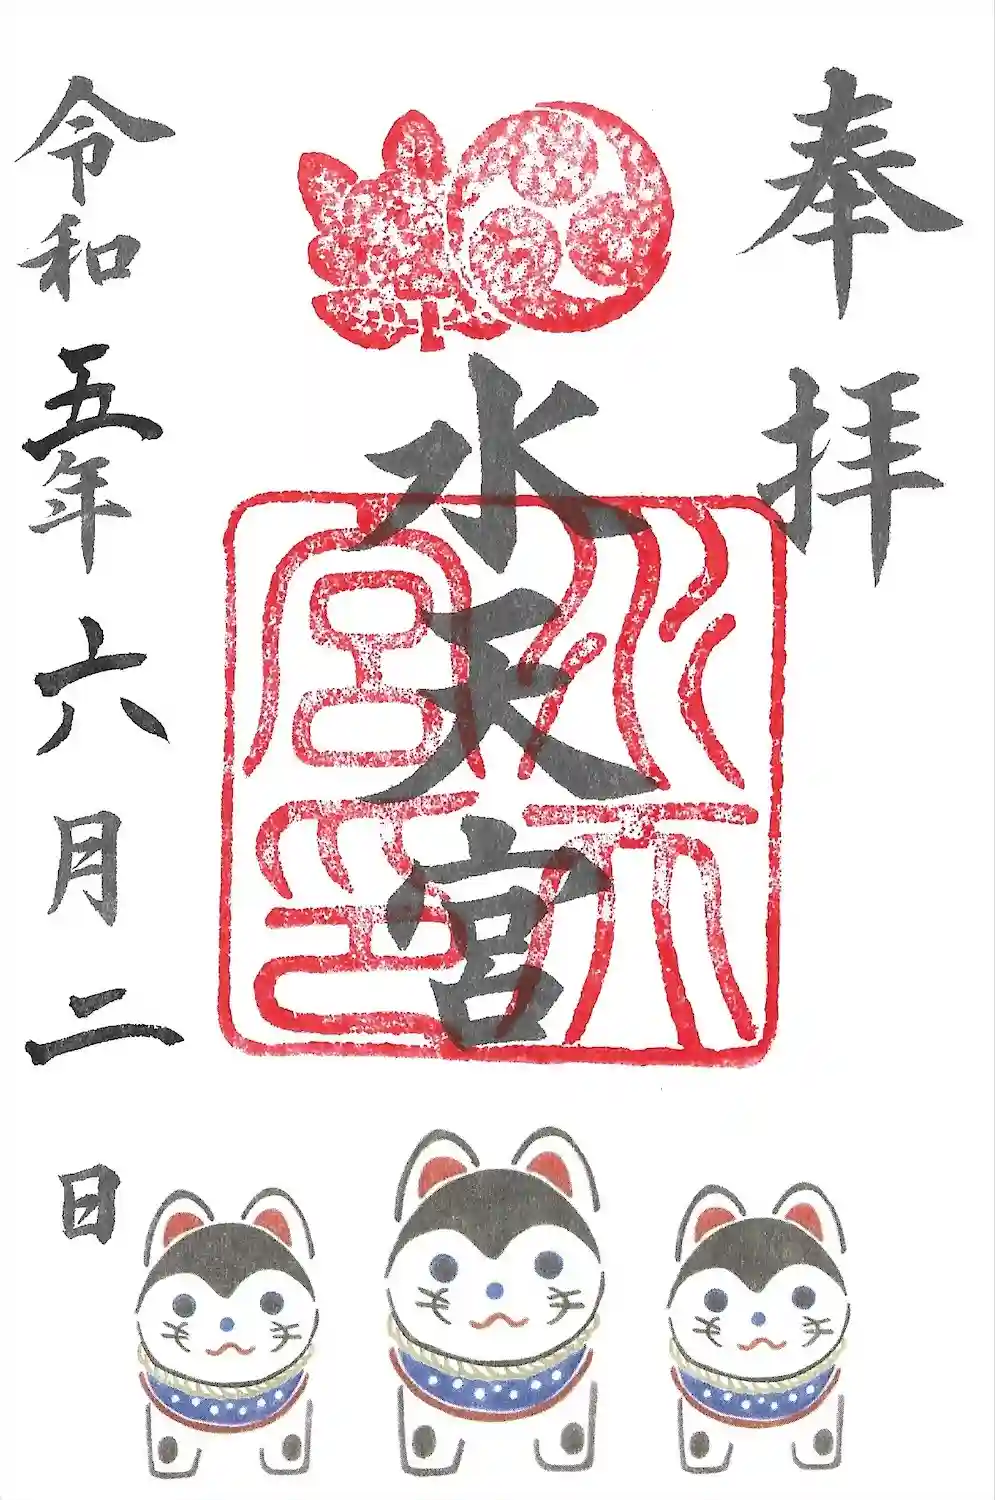 奉拝
水天宮
水天宮印
令和五年六月二日